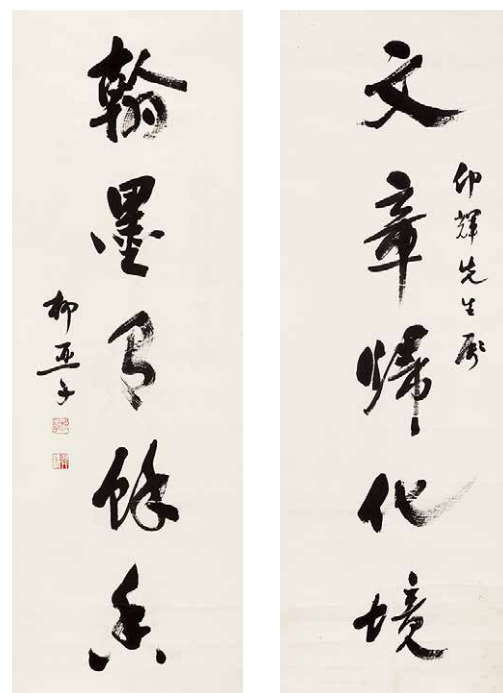 文章歸化境
仰輝先生
翰墨有餘香
柳亞子